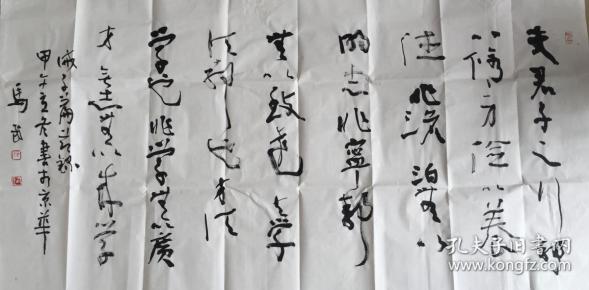 夫君子之行静
以修身俭以养
德非淡泊无以
明志非宁静
无以致远夫学
须静也才须
学也非学无以广
才非志无以成学
诫子篇节录
甲午立冬书于京华
马武
孔夫子旧书网